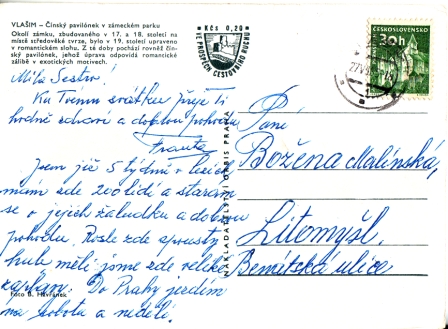 VLAŠIM – Čínský pavilónek v zámeckém parku
Okolí zámku, zbudovaného v 17. a 18. století na
místě středověké tvrze, bylo v 19. století upraveno
v romantickém slohu. Z té doby pochází rovněž čín-
ský pavilónek, jehož úprava odpovídá romantické
zálibě v exotických motivech.
Kčs 0,20
VE PROSPĚCH CESTOVNÍHO RUCHU
ČESKOSLOVENSKO
30h
Milá Sestro!
Ku Tvému svátku přeje Ti
hodně zdraví a dobrou pohodu
Franta
Jsem již 5 týdnů v lesích
mám zde 200 lidí a starám
se o jejich žaludku a dobrou
pohodu. Roste zde spousty
hub měli jsme zde veliké
záplavy. Do Prahy jezdím
na sobotu a neděli.
Paní
Božena Malínská,
Litomyšl.
Bemátská ulice
NAKLADATELSTVÍ ORBIS PRAHA
Foto B. Havránek